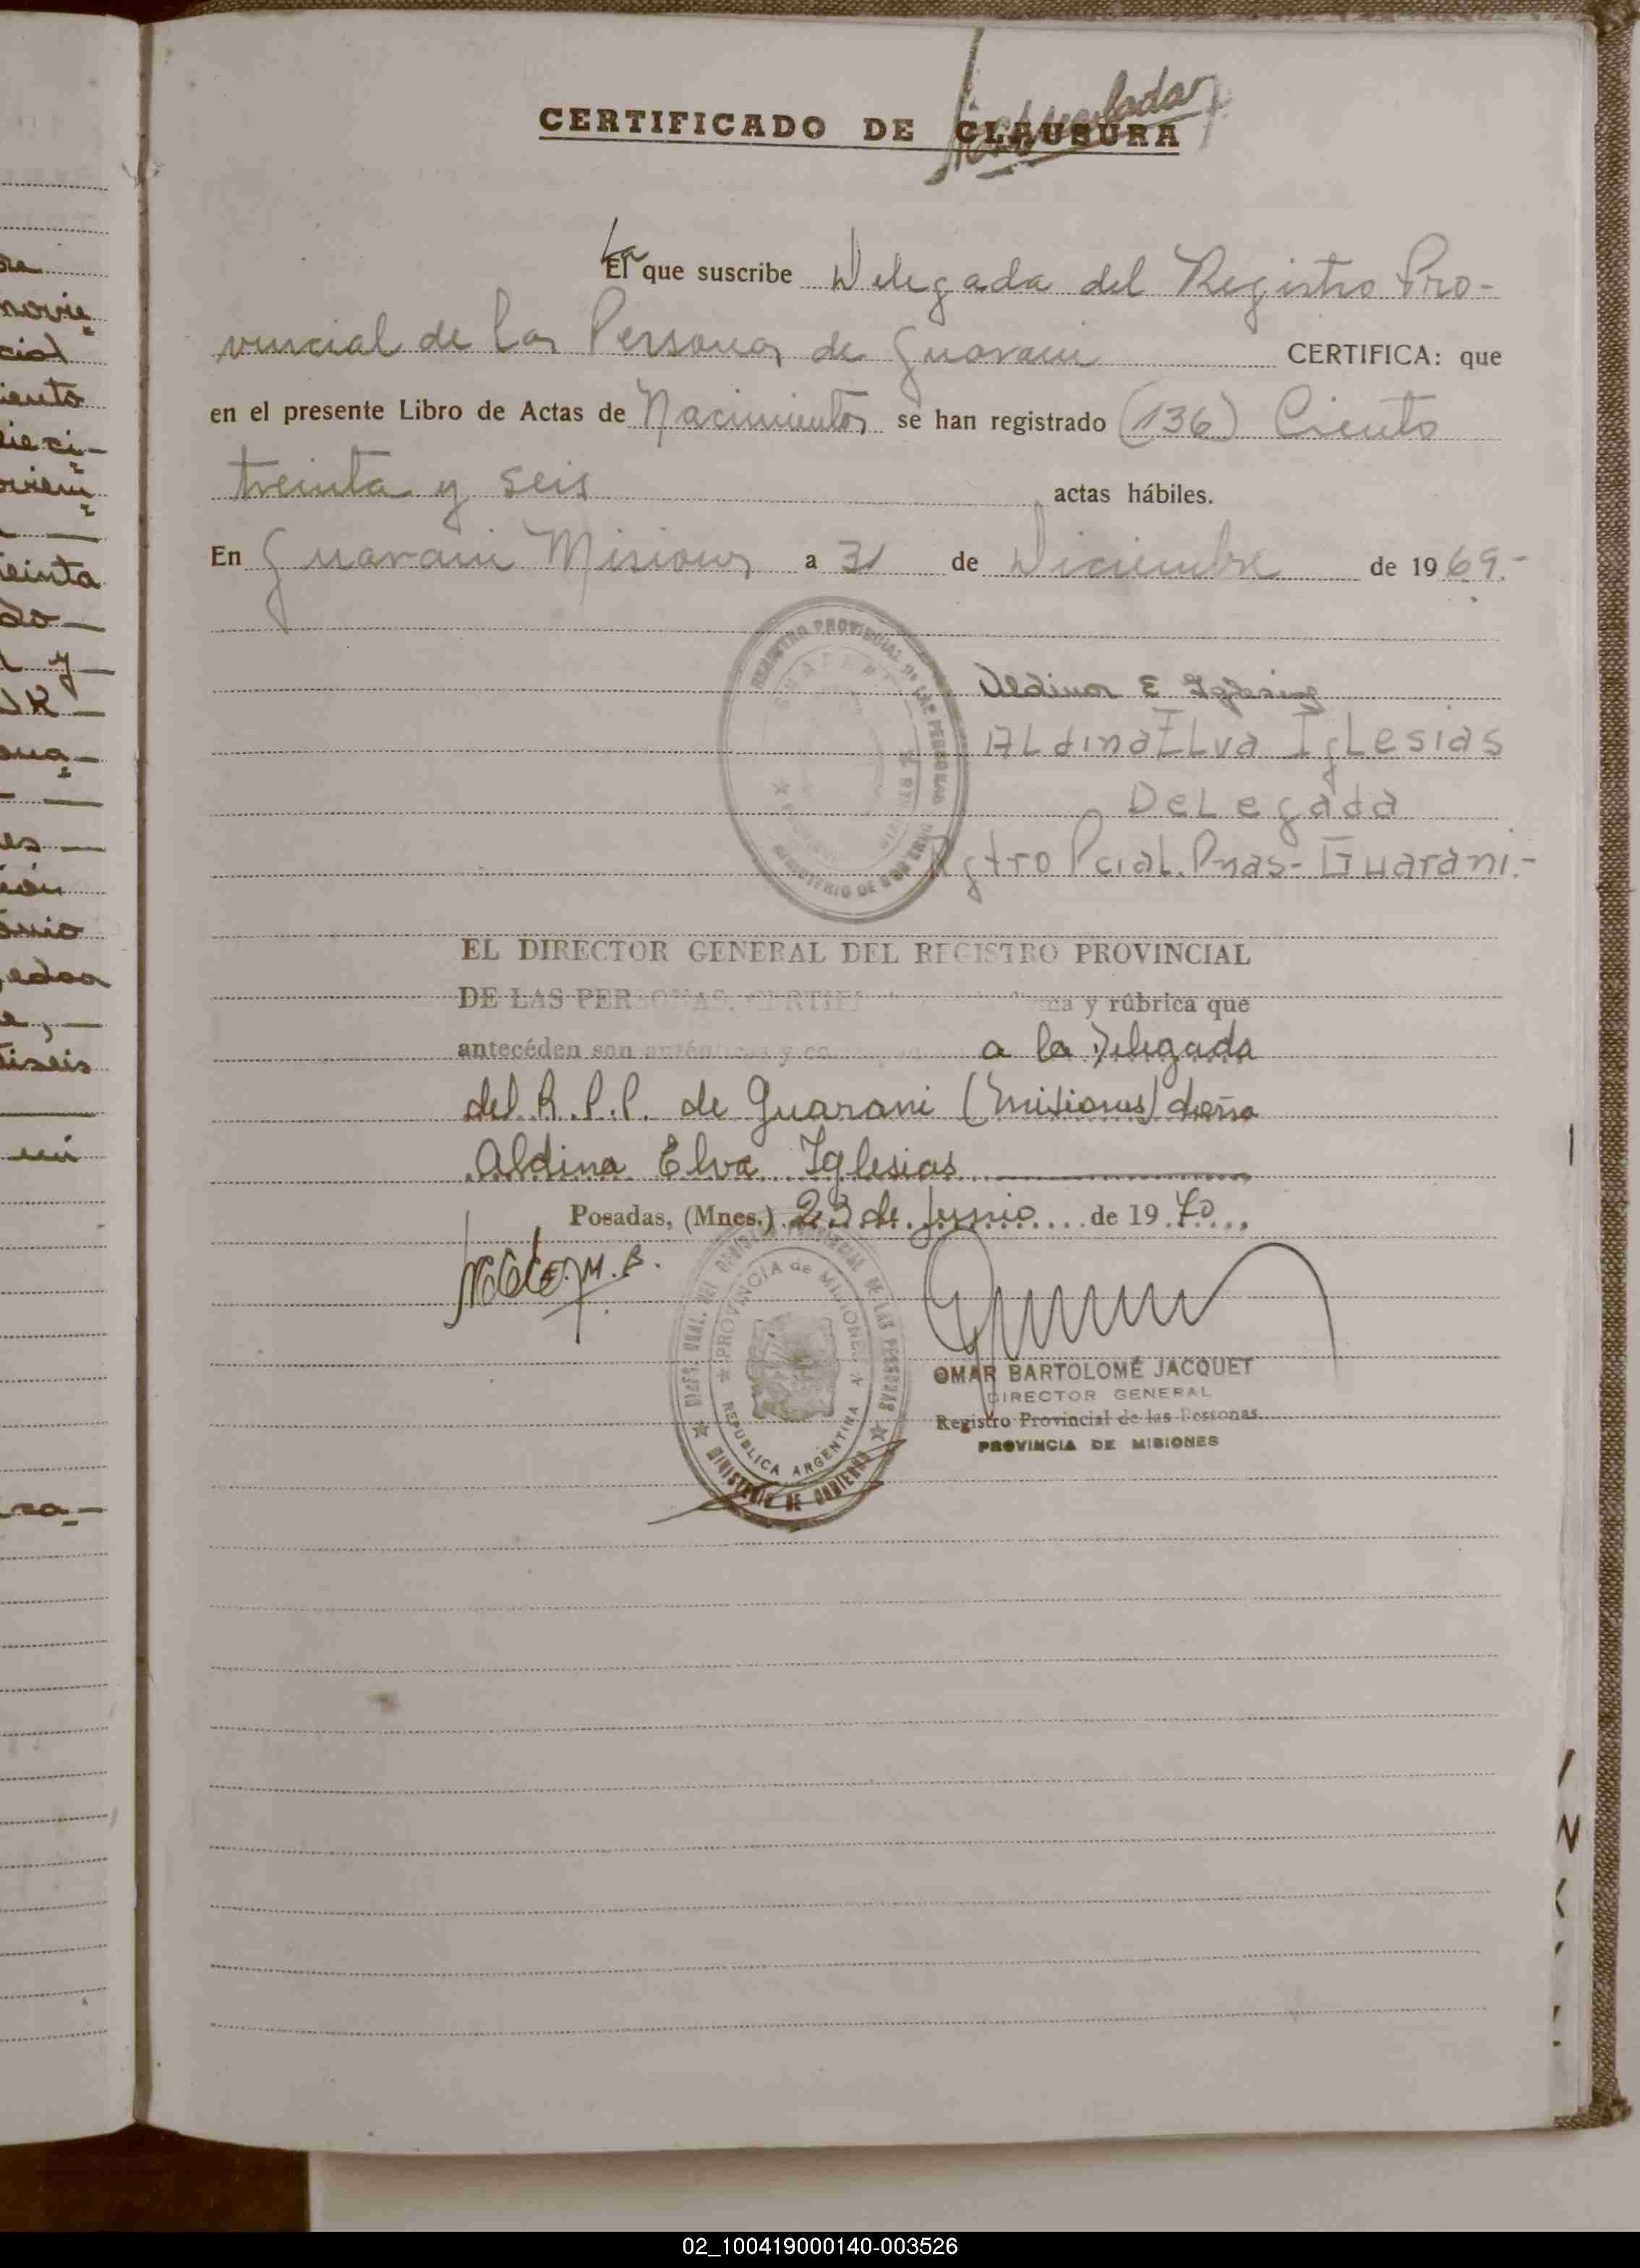 CERTIFICADO DE CLAUSURA
La
El que suscribe Delegada del Registro Pro-
vincial de las Personas de Guarani CERTIFICA: que
en el presente Libro de Actas de Nacimientos se han registrado (136) Ciento
treinta y seis actas hábiles.
En Guarani Misiones a 31 de Diciembre de 1969.-
REGISTRO PROVINCIAL DE LAS PERSONAS
GUARANI
MISIONES
MINISTERIO DE GOBIERNO
Aldina E Iglesias
ALdina ELva IgLesias
DeLegada
Rgtro Pcial. Pnas- Guarani.-
EL DIRECTOR GENERAL DEL REGISTRO PROVINCIAL
DE LAS PERSONAS, CERTIFI y rúbrica que
antecéden son auténticas y a la Delegada
del R.P.P. de Guarani (Misiones) doña
Aldina Elva Iglesias
Posadas, (Mnes.) 23 de Junio de 1970
M.B.
DIREC. GRAL. DEL REGISTRO PROVINCIAL DE LAS PERSONAS
PROVINCIA de MISIONES
REPUBLICA ARGENTINA
MINISTERIO DE GOBIERNO
OMAR BARTOLOMÉ JACQUET
DIRECTOR GENERAL
Registro Provincial de las Personas
PROVINCIA DE MISIONES
02_100419000140-003526